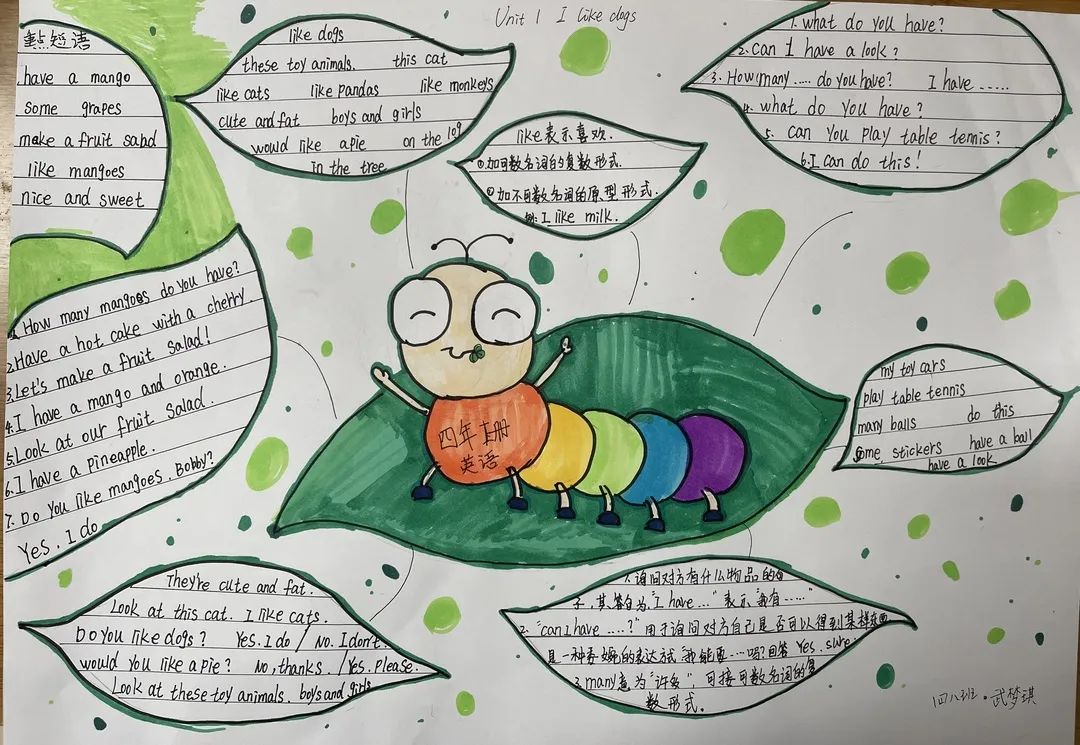 Unit 1 I like dogs
重点短语
have a mango
some grapes
make a fruit salad
like mangoes
nice and sweet
like dogs
these toy animals. this cat
like cats like pandas like monkeys
cute and fat boys and girls
would like a pie on the log
in the tree
like表示喜欢.
①加可数名词的复数形式.
②加不可数名词的原型形式.
例: I like milk.
1. what do you have?
2. can I have a look?
3. How many ..... do you have? I have .....
4. what do you have?
5. can you play table tennis?
6. I can do this!
1. How many mangoes do you have?
2. Have a hot cake with a cherry.
3. Let's make a fruit salad!
4. I have a mango and orange.
5. Look at our fruit salad.
6. I have a pineapple.
7. Do you like mangoes. Bobby?
Yes. I do
四年上册
英语
my toy cars
play table tennis
many balls do this
some stickers have a ball
have a look
They're cute and fat.
Look at this cat. I like cats.
Do you like dogs? Yes. I do / No. I don't.
would you like a pie? No, thanks. / Yes. Please.
Look at these toy animals. boys and girls
1. 询问对方有什么物品的句
子, 其答句为"I have ..." 表示"我有......"
2. "can I have ....?" 用于询问对方自己是否可以得到某样东西
是一种委婉的表达试"我能要....吗? 回答 Yes. sure.
3. many意为"许多", 可接可数名词的复
数形式.
四八班·武梦琪